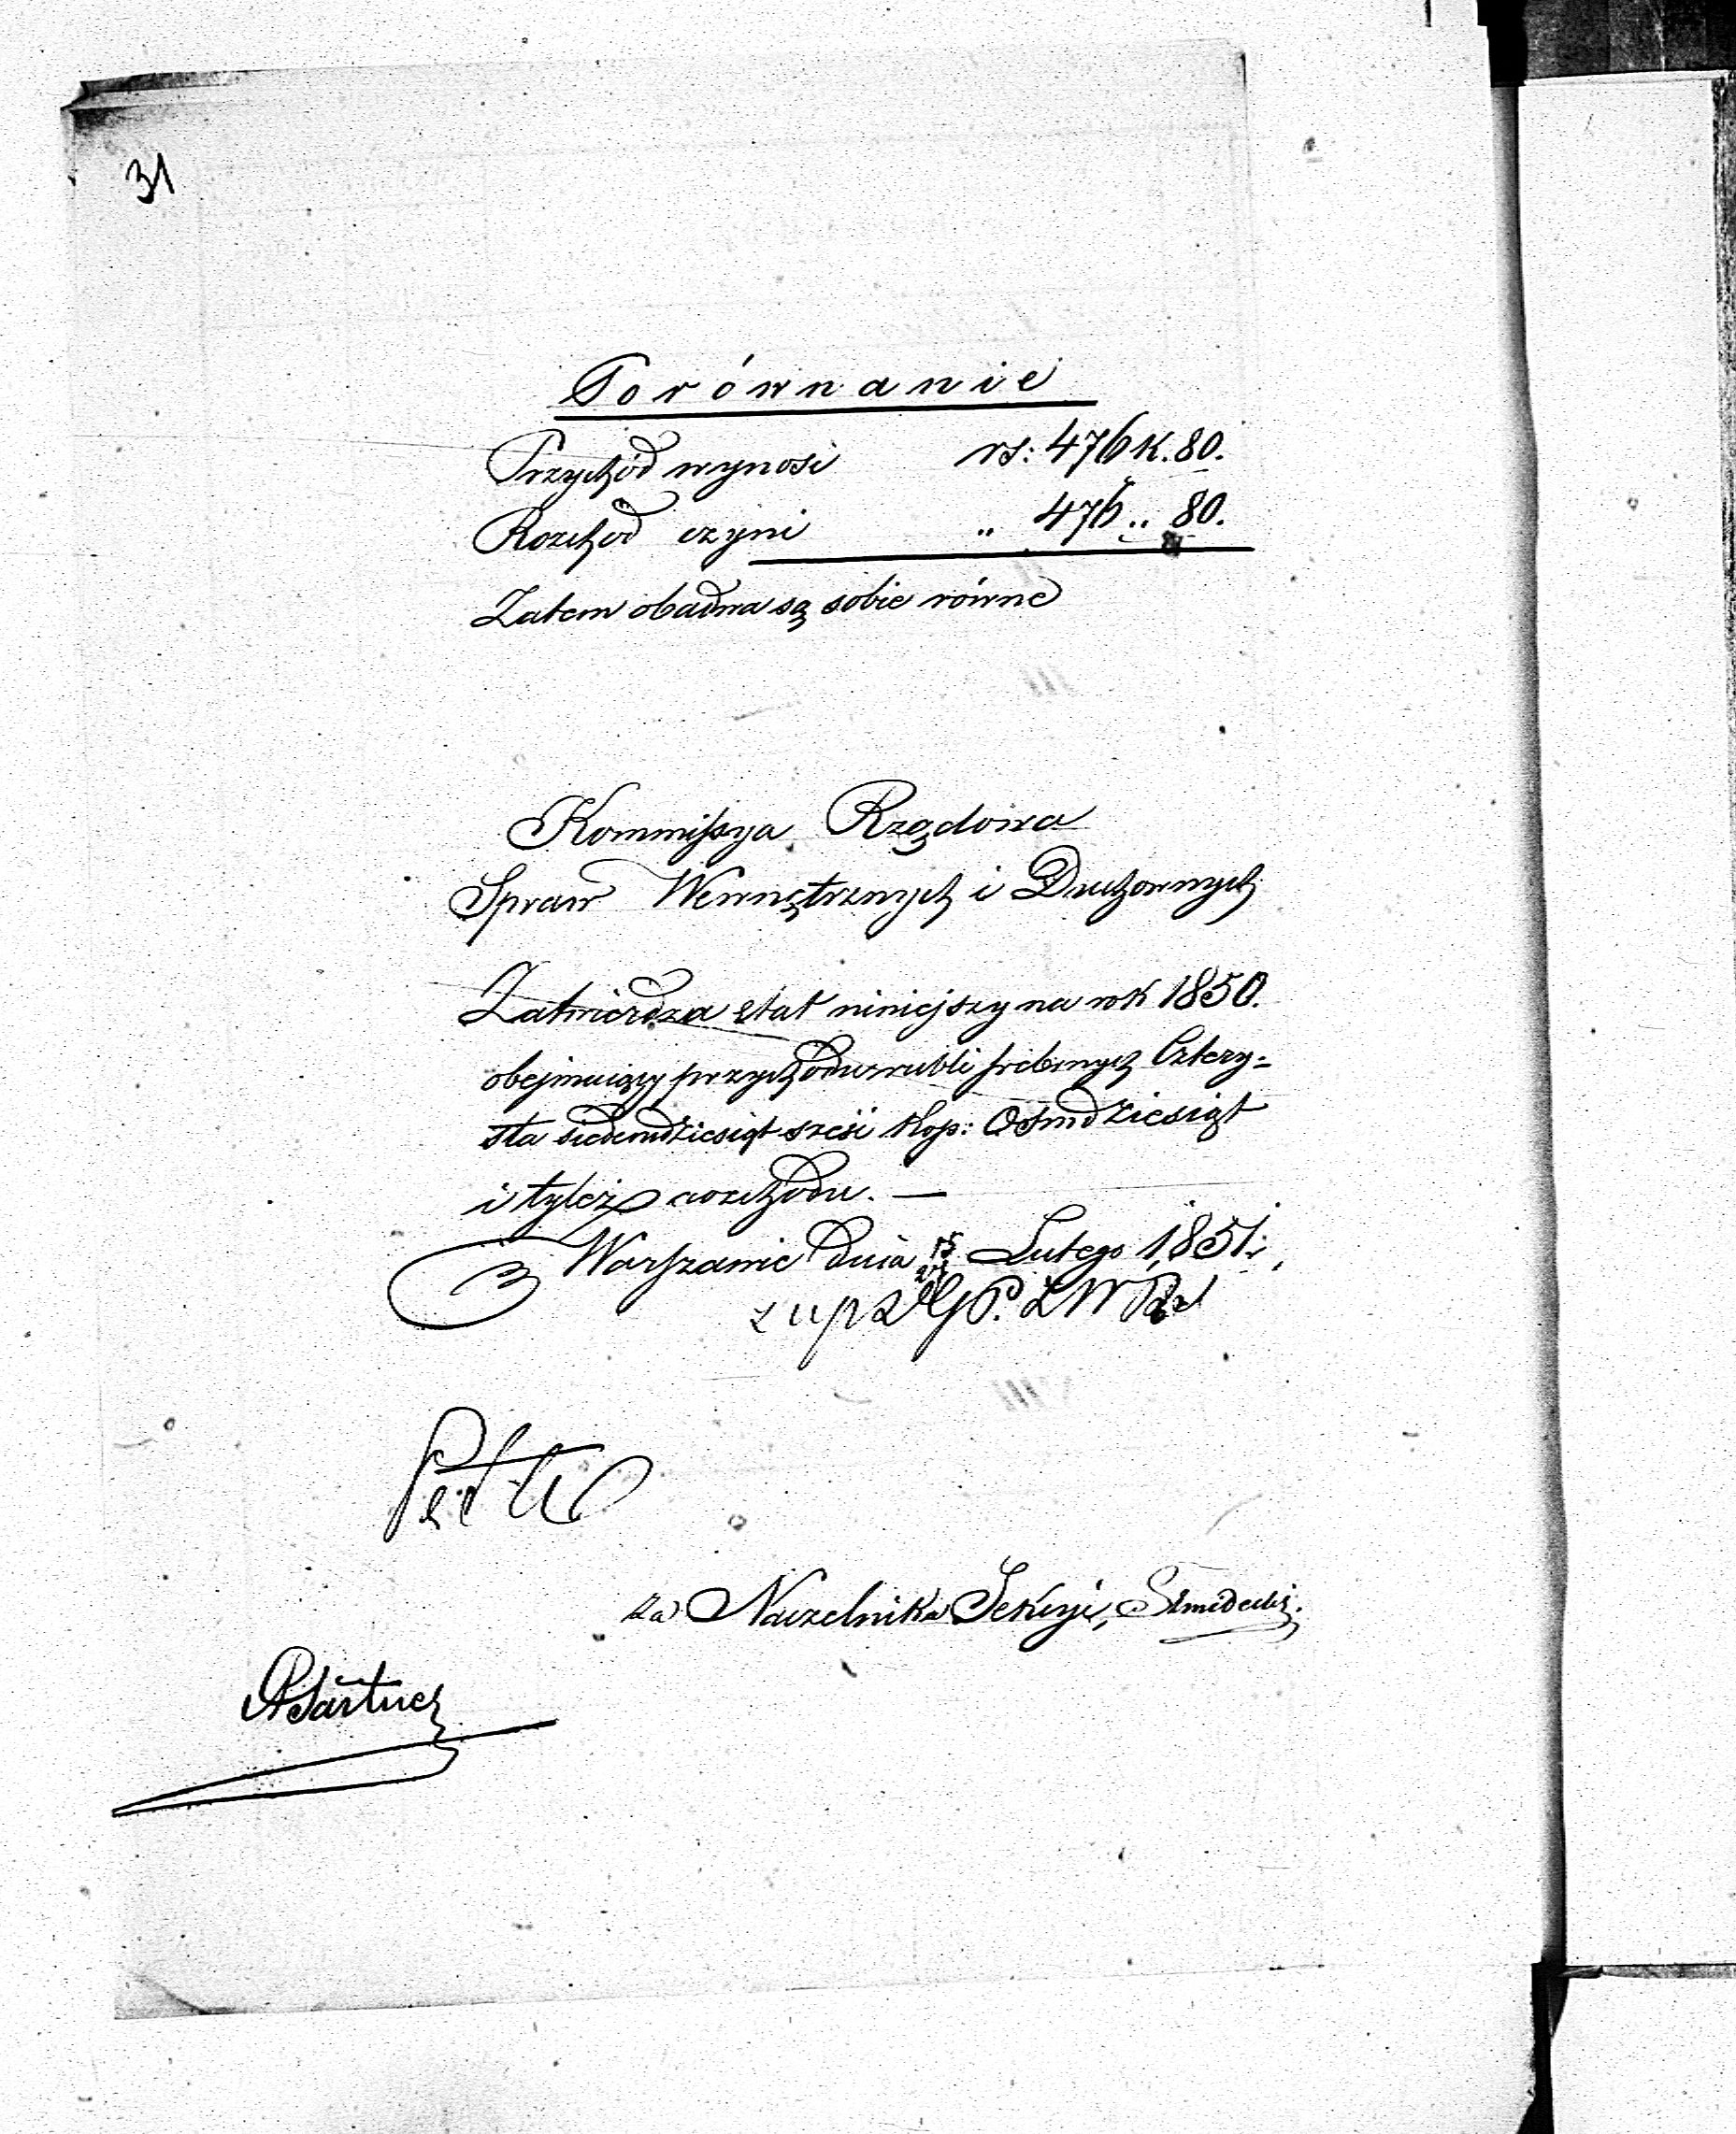 31
Porównanie
Przychód wynosi rs: 476 k. 80.
Rozchod czyni „ 476 „ 80.
Zatem obadwa są sobie równe
Kommissya Rządowa
Spraw Wewnętrznych i Duchownych
Zatwierdza etat niniejszy na rok 1850.
obejmuiący przychodu rubli srebrnych Cztery=
sta siedemdziesiąt sześć kop: Osmdziesiąt
i tyleż rozchodu. —
w Warszawie dnia Lutego 1851.
za Naczelnika Sekcyi,